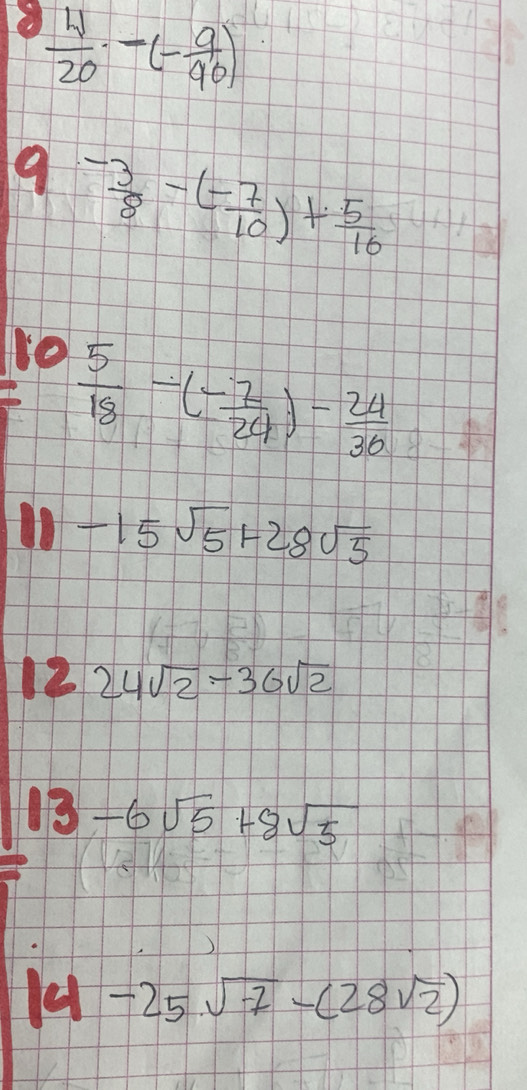 8 11/20 -(-9/90)
9 -3/8 -(-7/10)+5/16
10 5/18 -(-7/24)-24/36
11 -15√5+28√5
12 24√2-36√2
13 -6√5+8√5
14 -25√7-(28√2)